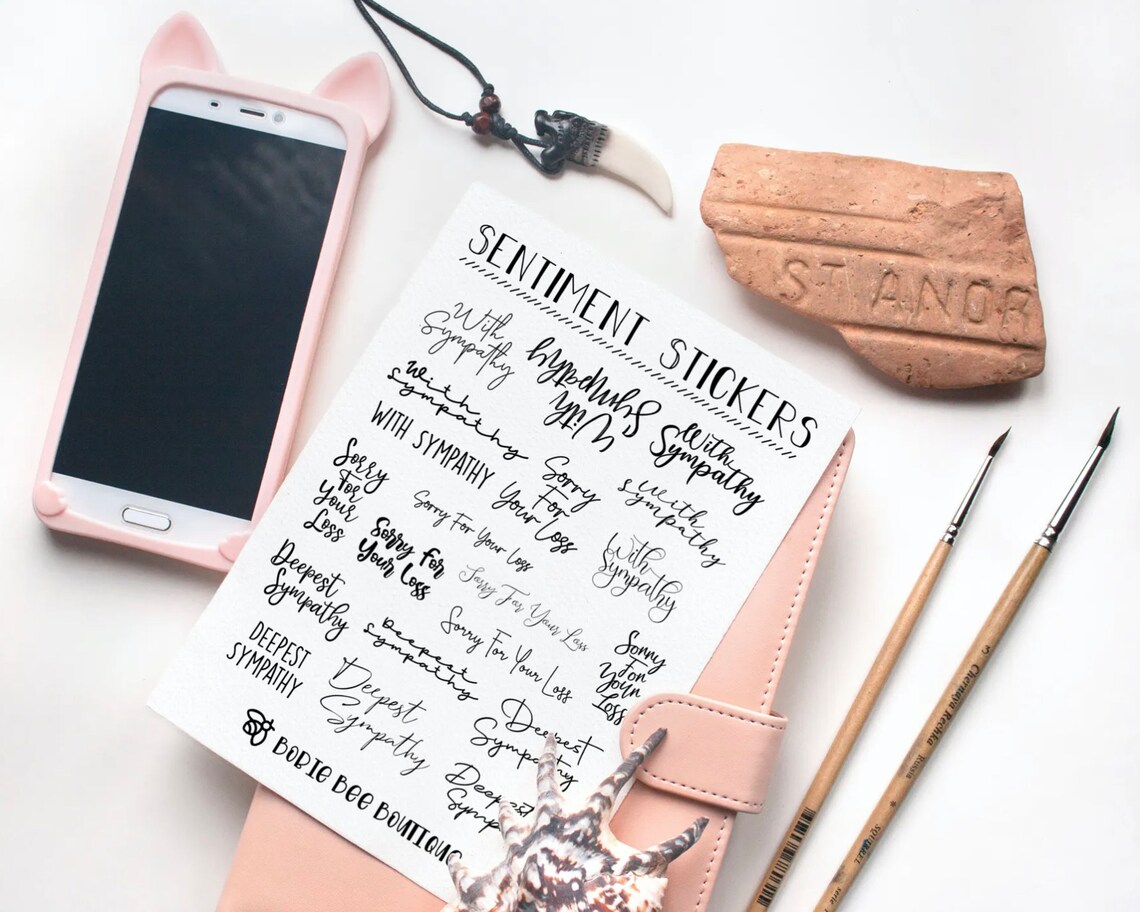 SENTIMENT STICKERS
With
Sympathy
With
Sympathy
With
Sympathy
With
Sympathy
WITH SYMPATHY
Sorry
For
Your Loss
With
Sympathy
Sorry
For
Your
Loss
Sorry For Your Loss
With
Sympathy
Sorry For
Your Loss
Sorry For Your Loss
Deepest
Sympathy
Deepest
Sympathy
Sorry For Your Loss
Sorry
For
Your
Loss
DEEPEST
SYMPATHY
Deepest
Sympathy
Deepest
Sympathy
Deepest
Symp
BOBIE BEE BOUTIQUE
ST ANDR
3 Chernaya Rechka Russia
SQUIRREL